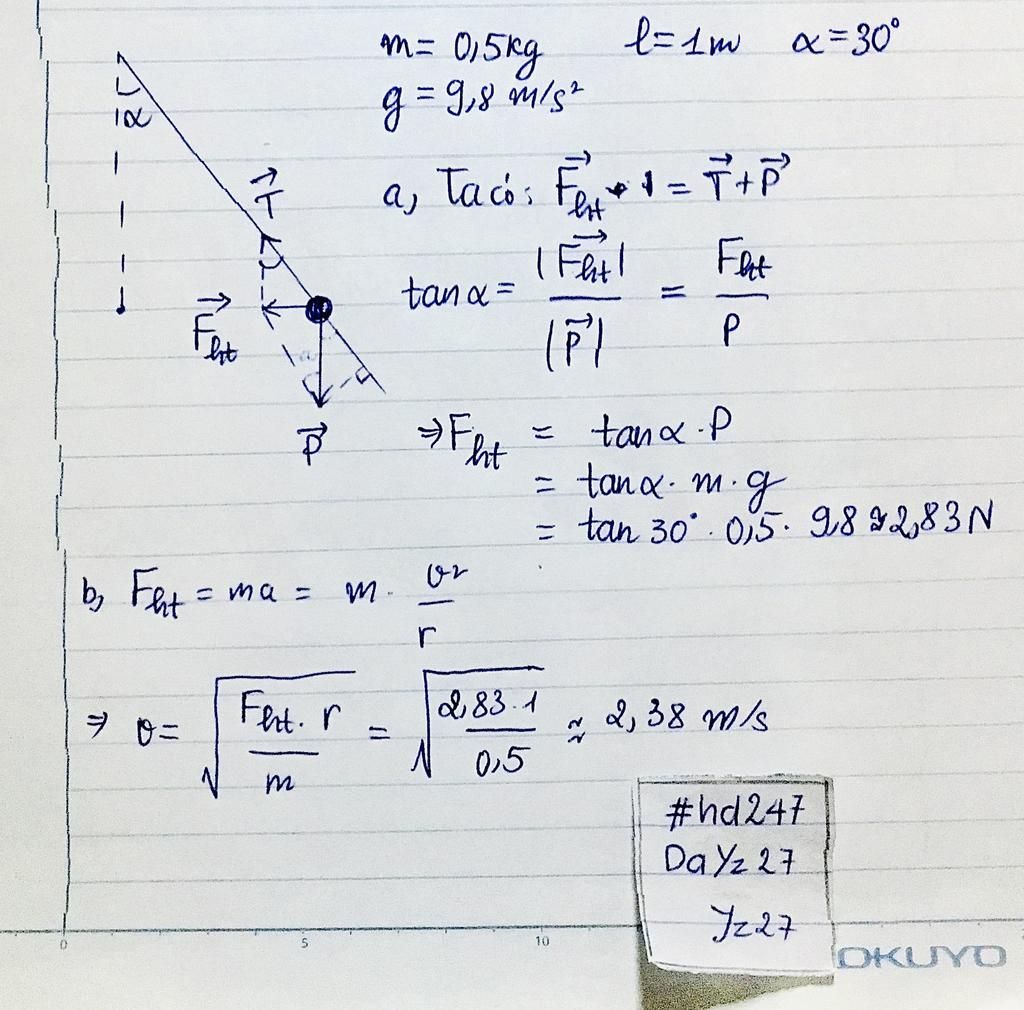 m = 0,5kg l = 1m α = 30°
g = 9,8 m/s²
α
T
F ht
P
a, Ta có: F ht · 1 = T + P
tan α = |F ht| / |P| = F ht / P
⇒ F ht = tan α . P
= tan α . m . g
= tan 30° . 0,5 . 9,8 ≈ 2,83 N
b, F ht = ma = m . v² / r
⇒ v = √(F ht . r / m) = √(2,83 . 1 / 0,5) ≈ 2,38 m/s
#hd247
DaYz27
Yz27
0 5 10
OKUYO